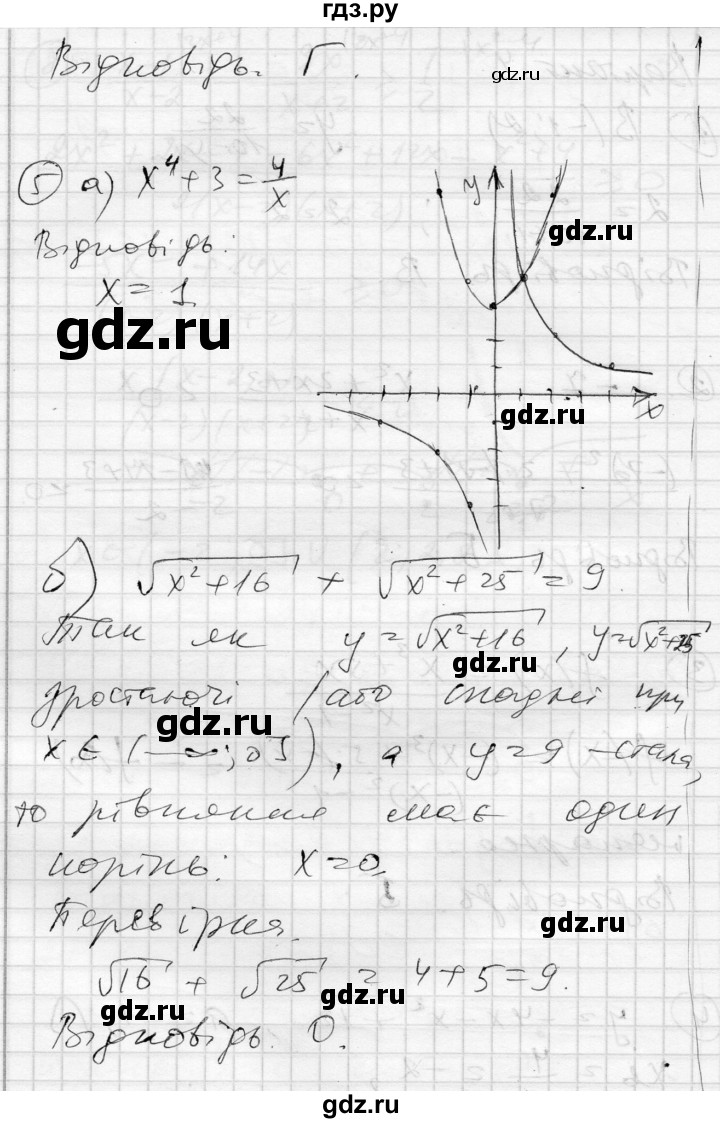 гдз.ру
Відповідь. Г.
gdz.ru
5 а) x⁴ + 3 = 4/x
y
gdz.ru
Відповідь:
x = 1
gdz.ru
gdz.ru
x
б) √(x² + 16) + √(x² + 25) = 9.
Так як y = √(x² + 16), y = √(x² + 25)
gdz.ru
зростаючі (або спадні при
gdz.ru
x ∈ (-∞; 0]), а y = 9 – стала,
то рівняння має один
корінь: x = 0.
Перевірка.
gdz.ru
√16 + √25 = 4 + 5 = 9.
gdz.ru
gdz.ru
Відповідь. 0.
gdz.ru